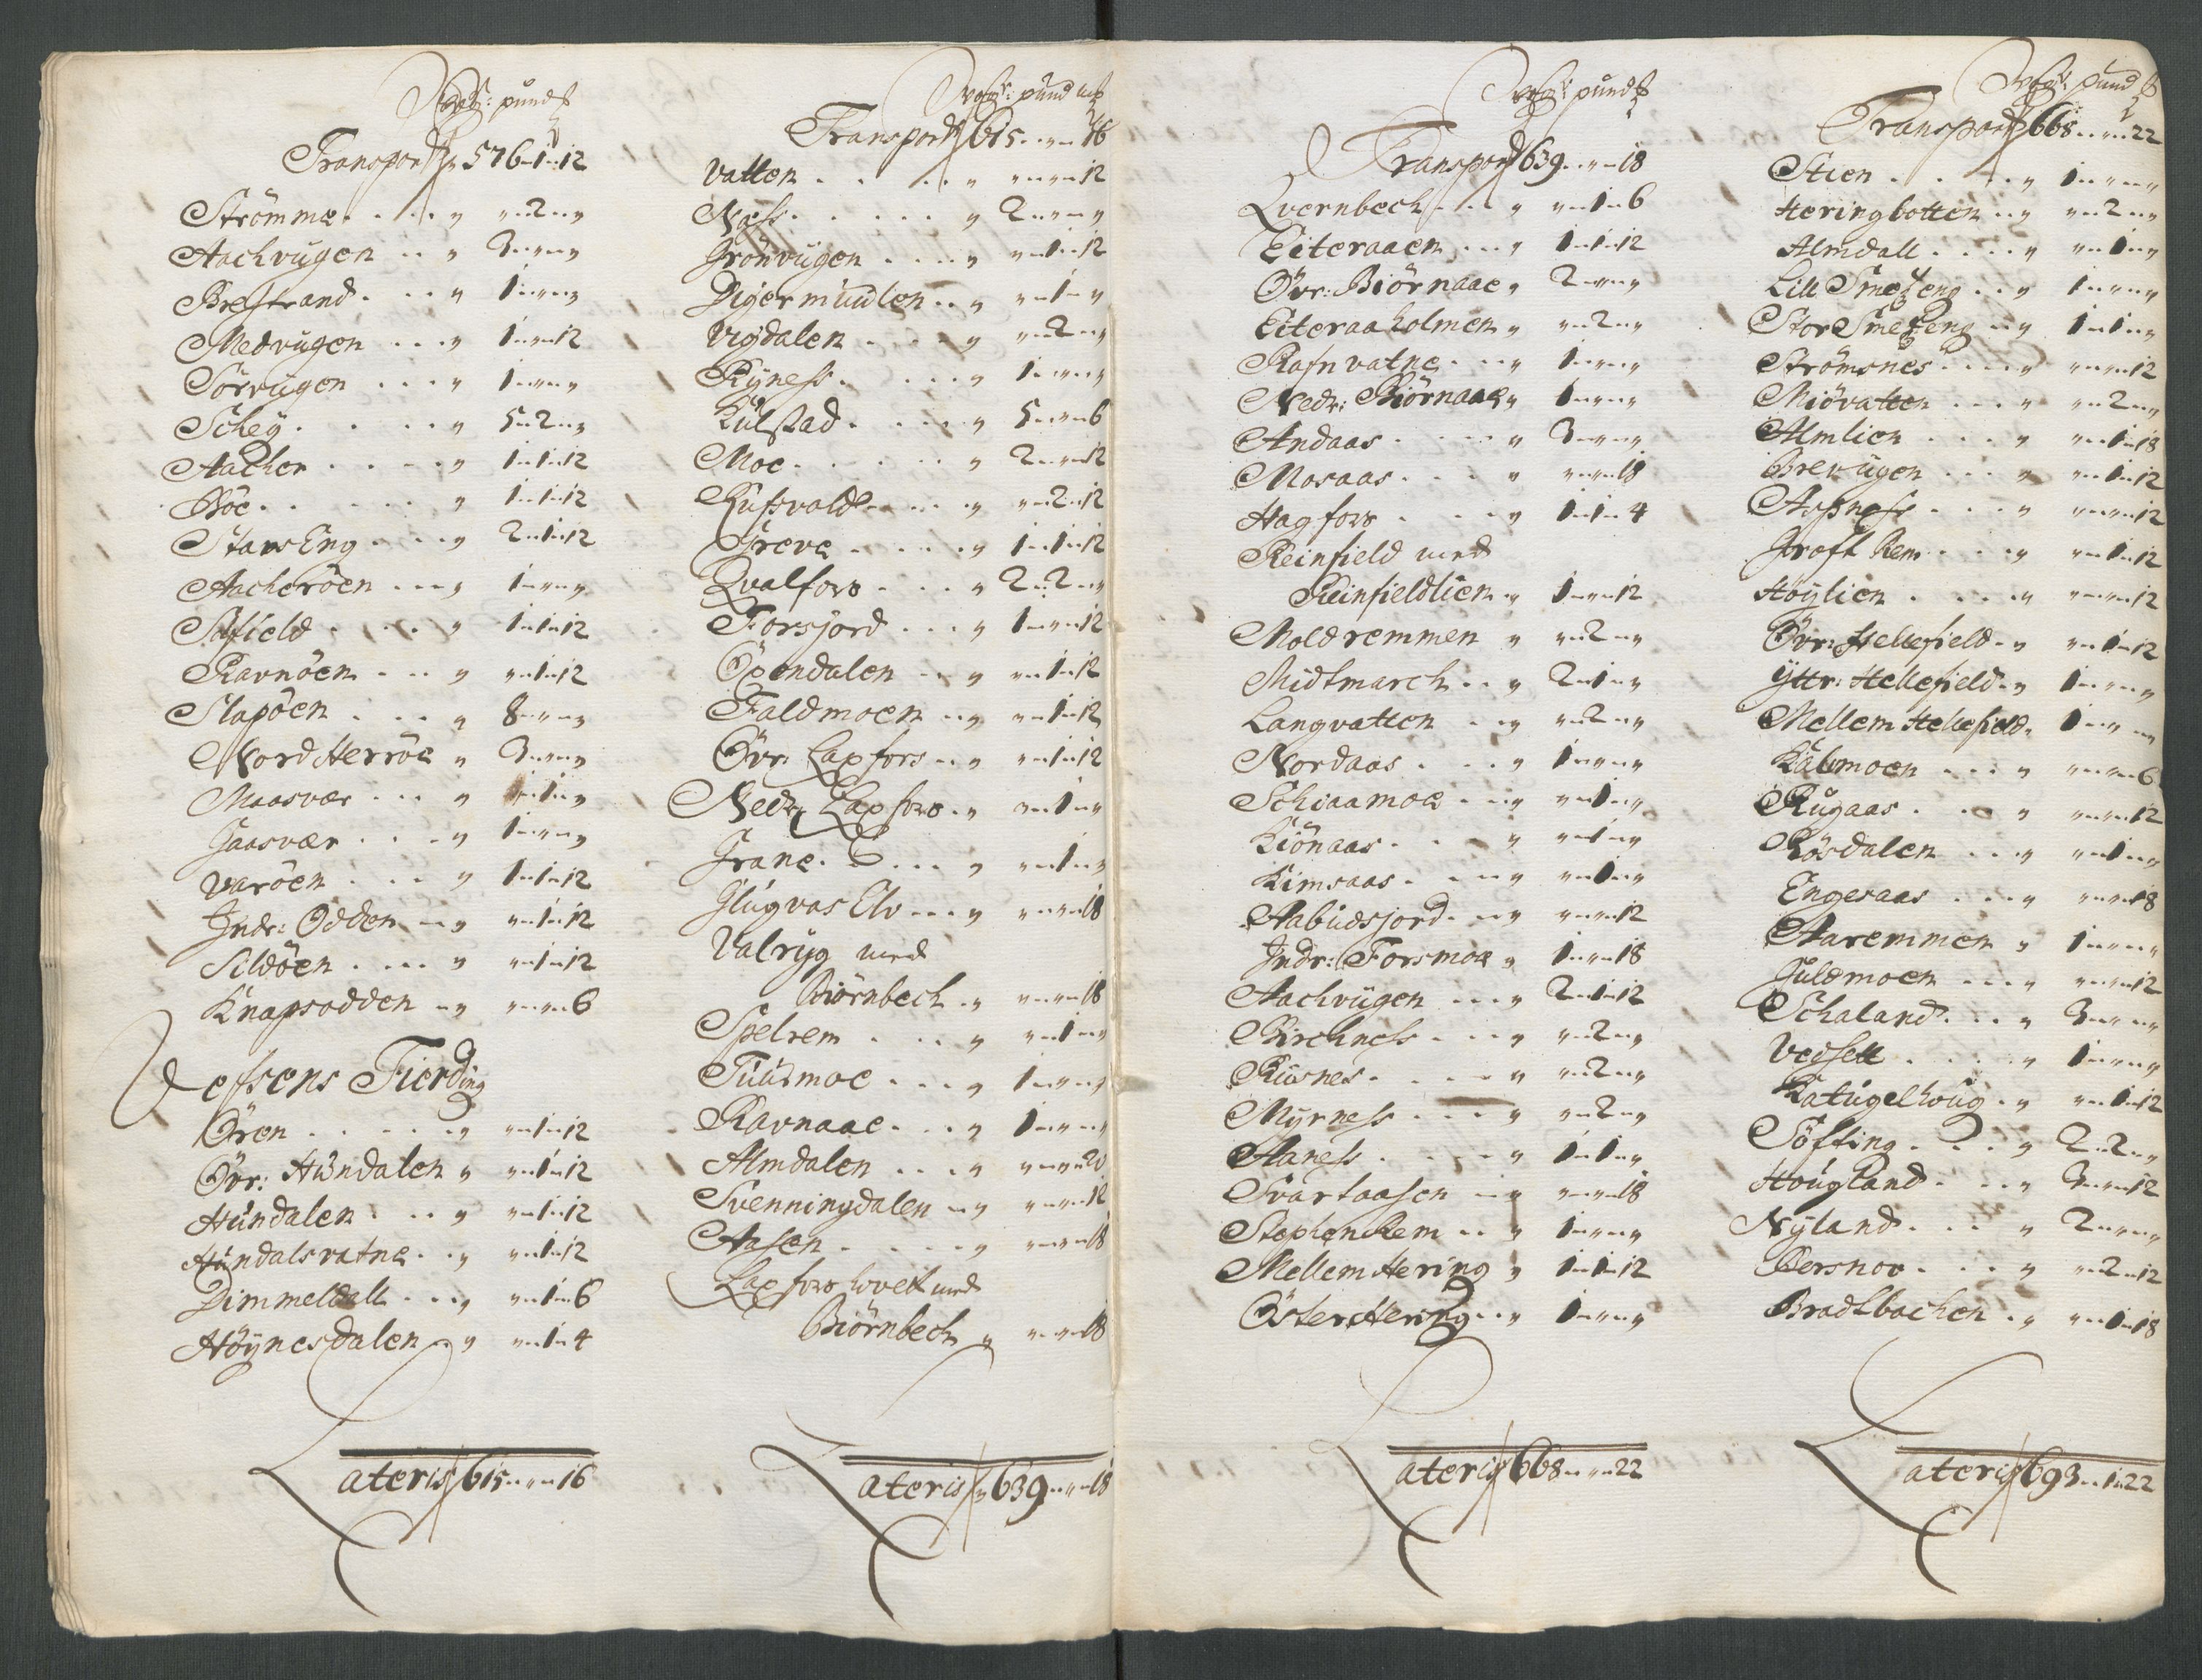 Wog: pund ℔
Transport 576 „ 1 „ 12
Strömme . . . . „ „ 2 „ „
Aachvugen . . „ 3 „ „ „
Brestrand . . . „ 1 „ „ „
Medvugen . . . „ 1 „ „ 12
Sörvugen . . . . „ 1 „ „ „
Schey . . . . . „ 5 „ 2 „ „
Aacher . . . . . „ 1 „ 1 „ 12
Böe . . . . . . „ 1 „ 1 „ 12
StavsEng . . . . „ 2 „ 1 „ 12
Aacheröen . . . „ 1 „ „ „
Siffield . . . . „ 1 „ 1 „ 12
Ravnöen . . . „ „ 1 „ 12
Slapöen . . . . „ 8 „ „ „
Nord Herröe „ 3 „ „ „
Maasvær . . . „ „ 1 „ „
Gaasvær . . . „ 1 „ „ „
Varöen . . . . „ 1 „ 1 „ 12
Indr: Odden . . „ „ 1 „ 12
Sildöen . . . . „ „ 1 „ 12
Knapsodden . „ „ „ 6
Vefsens Fierding
Ören . . . . . . „ „ 1 „ 12
Övr: Hundalen „ „ 1 „ 12
Hundalen . . . „ „ 1 „ 12
Hundalsvatne . . „ „ 1 „ 12
Dimmeldall . . . „ „ 1 „ 6
Höynesdalen . „ „ 1 „ 4
Lateris 615 „ „ 16
Wog: pund ℔
Transport 615 „ „ 16
Vatten . . . . . „ „ „ 12
Næss . . . . . . „ 2 „ „ „
Grönvugen . . . . „ „ 1 „ 12
Digermuulen . . „ „ 1 „ „
Vigdalen . . . . „ „ 2 „ „
Ryness . . . . . „ 1 „ „ „
Kulstad . . . . . „ 5 „ „ 6
Moe . . . . . . „ 2 „ „ 12
Kufsvold . . . . „ „ 2 „ 12
Greve . . . . . „ 1 „ 1 „ 12
Qvalfors . . . . „ 2 „ 2 „ „
Forsjord . . . „ 1 „ „ 12
Öxendalen . . „ „ 1 „ 12
Faldmoen . . „ „ 1 „ 12
Övr: Laxfors . . „ „ 1 „ 12
Nedr: Laxfors . „ „ 1 „ „
Grane . . . . . „ „ 1 „ „
Glugvas Elv . . . „ „ „ 18
Valryg med
Biörnbech . „ „ „ 18
Spelrem . . . . „ „ 1 „ „
Tuusmoe . . . . „ 1 „ „ „
Ravnaae . . . „ 1 „ „ „
Almdalen . . . . „ „ „ 20
Svenningdalen . „ „ „ 12
Aasen . . . . . „ „ „ 18
Laxforshovet med
Biörnbech „ „ „ 18
Lateris 639 „ „ 18
Wog: pund ℔
Transport 639 „ „ 18
Qvernbech . . . „ „ 1 „ 6
Eiteraaen . . . „ 1 „ 1 „ 12
Övr: Biörnaae „ 2 „ „ „
Eiteraaholmen „ „ 2 „ „
Rafnvatne . . . „ 1 „ „ „
Nedr: Biörnaae „ 1 „ „ „
Andaas . . . . „ 3 „ „ „
Mosaas . . . . „ „ „ 18
Hagfors . . . . „ 1 „ 1 „ 4
Reinfield med
Reinfieldlien „ 1 „ „ 12
Moldremmen „ „ 2 „ „
Midtmarch . . „ 2 „ 1 „ „
Langvatten . . „ „ 2 „ „
Nordaas . . . „ 1 „ „ „
Schiaamoe . . „ „ 1 „ „
Kiönaas . . . „ „ 1 „ „
Kimsaas . . . „ „ 1 „ „
Aabudsjord . . „ „ „ 12
Indr: Forsmoe „ 1 „ „ 18
Aachvugen . . . „ 2 „ 1 „ 12
Birchness . . . „ „ 2 „ „
Riusnes . . . . „ „ 2 „ „
Myrness . . . . „ „ 2 „ „
Aaness . . . . . „ 1 „ 1 „ „
Svartaasen . . „ „ „ 18
StephenRem . . „ 1 „ „ „
Mellem Hering „ 1 „ 1 „ 12
Öster Hering . . „ 1 „ „ „
Lateris 668 „ „ 22
Wog: pund ℔
Transport 668 „ „ 22
Stien . . . . . „ 1 „ „ „
Heringbotten . . „ „ 2 „ „
Almdall . . . . „ „ 1 „ „
Lill Smedseng . . „ 1 „ „ „
Stor Smedseng . . „ 1 „ 1 „ „
Strömsnes . . . . „ „ „ 12
Miövatten . . . „ „ 2 „ „
Almlien . . . . „ „ 1 „ 18
Brevugen . . . „ „ 1 „ 12
Aspness . . . . „ „ „ 12
Groft Rem . . . „ „ 1 „ 12
Höylien . . . . „ „ „ 12
Övr: Hellefield . „ „ 1 „ 12
Yttr: Hellefield . „ 1 „ „ „
Mellem Hellefield „ 1 „ „ „
Kalvmoen . . . „ „ „ 6
Rugaas . . . . „ „ „ 12
Rösdalen . . . „ „ 1 „ „
Engesaas . . . „ „ „ 18
Aaremmen „ 1 „ „ „
Guldmoen . . . „ „ „ 12
Schaland . . . „ 3 „ „ „
Vedselt . . . . „ 1 „ „ „
Katugelhoug . „ „ 1 „ 12
Söfting . . . . „ 2 „ 2 „ „
Hougland . . . „ 3 „ „ 12
Nyland . . . . „ 2 „ „ „
Bersnov . . . „ „ 2 „ 12
Bradtbachen . „ „ 1 „ 18
Lateris 693 „ 1 „ 22